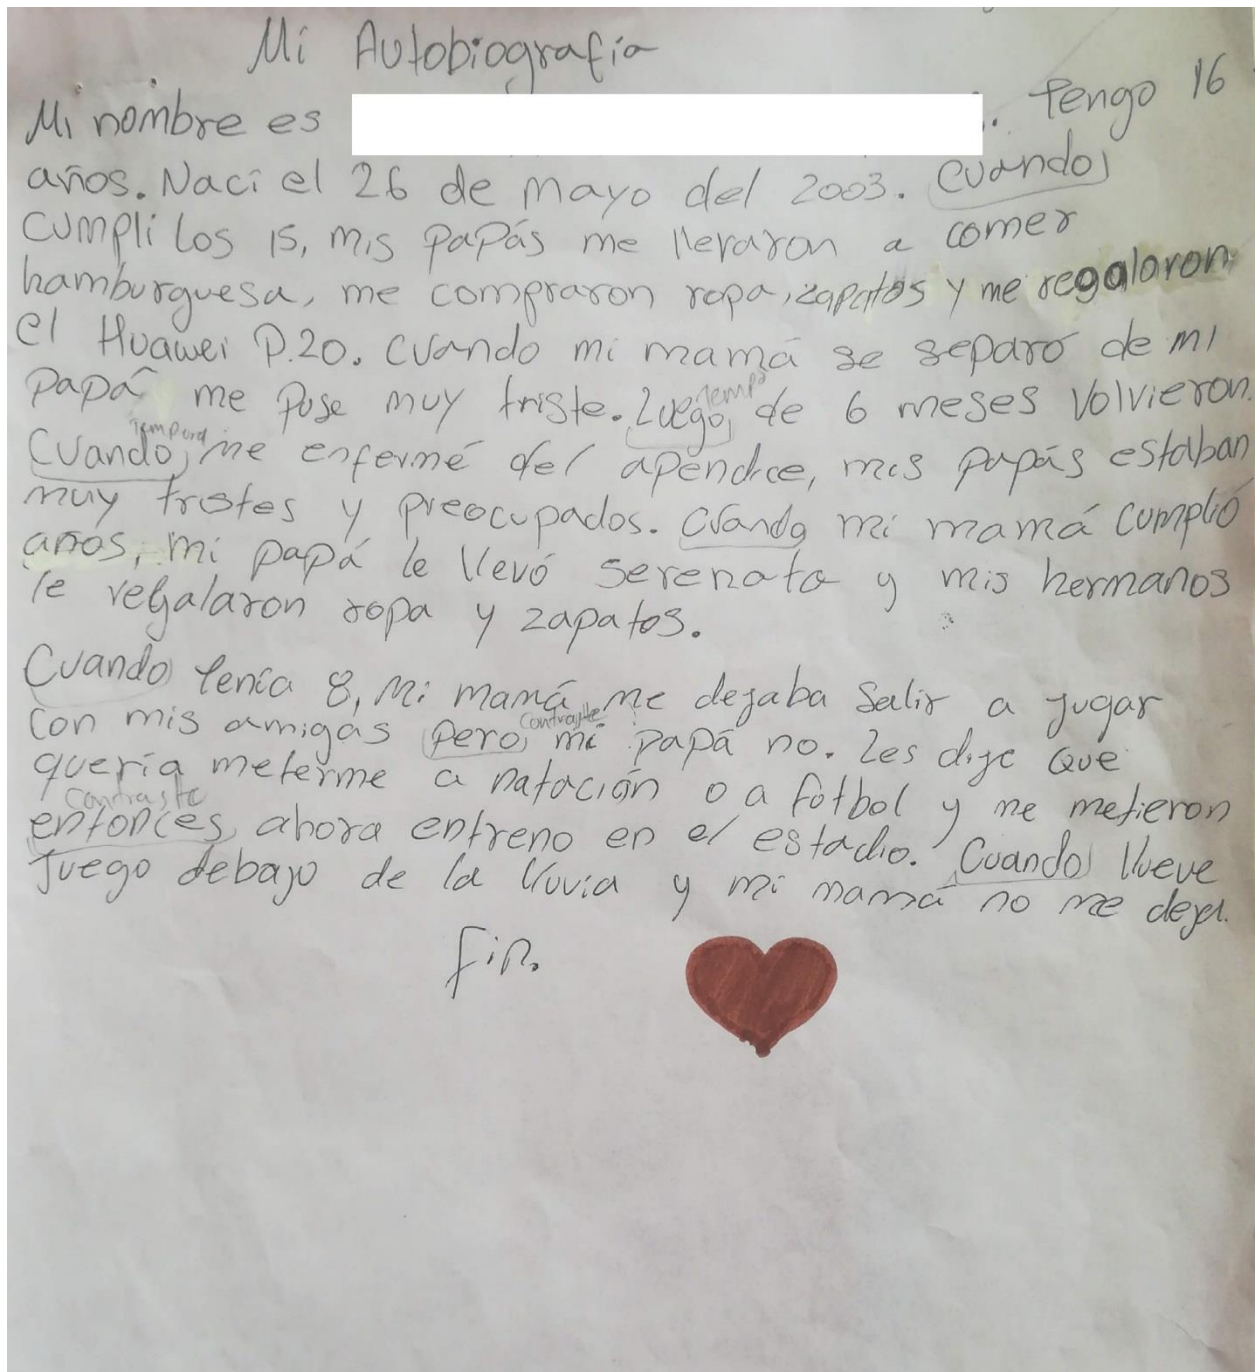 Mi Autobiografía
Mi nombre es . Tengo 16
años. Nací el 26 de mayo del 2003. Cuando
cumplí los 15, mis papás me llevaron a comer
hamburguesa, me compraron ropa, zapatos y me regalaron
el Huawei P.20. Cuando mi mamá se separó de mi
papá me puse muy triste. Luego de 6 meses volvieron.
tempo
Cuando me enfermé del apendice, mis papás estaban
tempora
muy tristes y preocupados. Cuando mi mamá cumplió
años, mi papá le llevó serenata y mis hermanos
le regalaron ropa y zapatos.
Cuando tenía 8, Mi mamá me dejaba salir a jugar
con mis amigas pero mi papá no. Les dije que
contraste
quería meterme a natación o a fotbol y me metieron
contraste
entonces ahora entreno en el estadio. Cuando llueve
Juego debajo de la lluvia y mi mamá no me deja.
Fin.